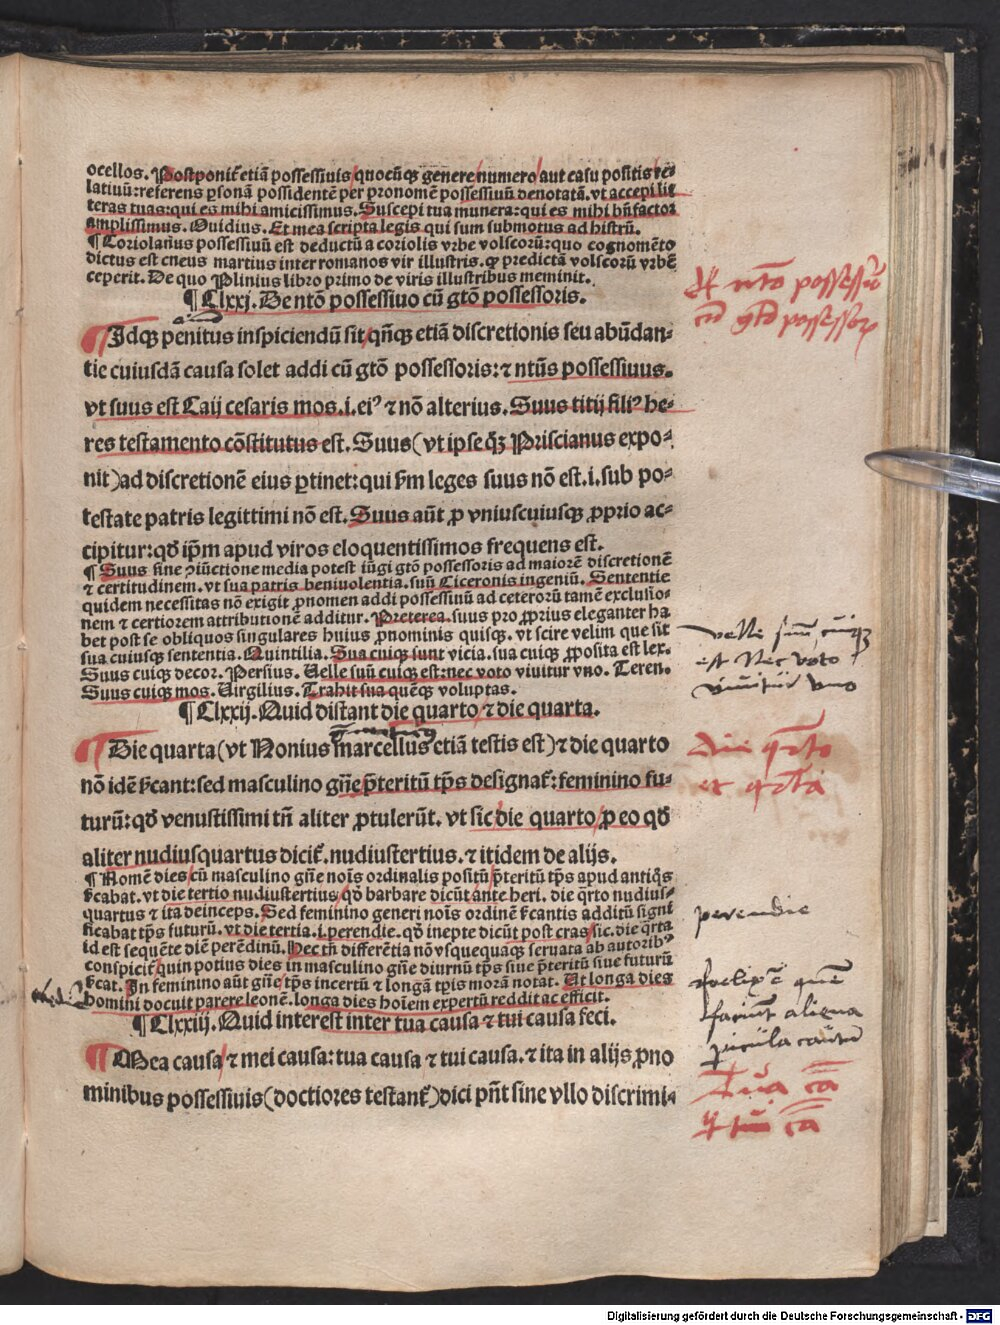 ocellos. Postponit̃ etiã possessiuis/quocũqꝫ genere/numero/aut casu positis/re⸗
latiuũ:referens ꝑsonã possidentẽ per pronomẽ possessiuũ denotatã. vt accepi lit
teras tuas:qui es mihi amicissimus. Suscepi tua munera:qui es mihi bñfactor
amplissimus. Ouidius. Et mea scripta legis qui sum submotus ad histrũ.
¶ Coriolanus possessiuũ est deductũ a coriolis vrbe volscorũ:quo cognomẽto
dictus est cneus martius inter romanos vir illustris. ꝙ predictã volscorũ vrbẽ
ceperit. De quo Plinius libro primo de viris illustribus meminit.
¶ Clxxj. De ntõ possessiuo cũ gtõ possessoris.
Idqꝫ penitus inspiciendũ sit/qñqꝫ etiã discretionis seu abũdan⸗
tie cuiusdã causa solet addi cũ gtõ possessoris:⁊ ntũs possessiuus.
vt suus est Caij cesaris mos.i.eiꝰ ⁊ nõ alterius. Suus titij filiꝰ he⸗
res testamento cõstitutus est. Suus(vt ipse qꝫ Priscianus expo⸗
nit)ad discretionẽ eius ꝑtinet:qui ẜm leges suus nõ est.i.sub po⸗
testate patris legittimi nõ est. Suus aũt ꝓ vniuscuiusqꝫ ꝓprio ac⸗
cipitur:qđ ip̃m apud viros eloquentissimos frequens est.
¶ Suus sine ꝯiũctione media potest iũgi gtõ possessoris ad maiorẽ discretionẽ
⁊ certitudinem. vt sua patris beniuolentia. suũ Ciceronis ingeniũ. Sententie
quidem necessitas nõ exigit ꝓnomen addi possessiuũ ad ceterorũ tamẽ exclusio⸗
nem ⁊ certiorem attributionẽ additur. Preterea. suus pro ꝓprius eleganter ha
bet post se obliquos singulares huius ꝓnominis quisqꝫ. vt scire velim que sit
sua cuiusqꝫ sententia. Quintilia. Sua cuiqꝫ sunt vicia. sua cuiqꝫ ꝓposita est lex.
Suus cuiqꝫ decor. Persius. Uelle suũ cuiqꝫ est:nec voto viuitur vno. Teren.
Suus cuiqꝫ mos. Uirgilius. Trahit sua quẽqꝫ voluptas.
¶ Clxxij. Quid distant die quarto ⁊ die quarta.
Die quarta(vt Nonius marcellus etiã testis est)⁊ die quarto
nõ idẽ ẜcant:sed masculino gñe p̃teritũ tp̃s designat̃:feminino fu⸗
turũ:qđ venustissimi tñ aliter ꝓtulerũt. vt sic/die quarto/ꝓ eo qđ
aliter nudiusquartus dicit̃. nudiustertius. ⁊ itidem de alijs.
¶ Nomẽ dies/cũ masculino gñe noĩs ordinalis positũ/p̃teritũ tp̃s apud antiq̃s
ẜcabat. vt die tertio nudiustertius/qđ barbare dicũt ante heri. die q̃rto nudius⸗
quartus ⁊ ita deinceps. Sed feminino generi noĩs ordinẽ ẜcantis additũ signi
ficabat tp̃s futurũ. vt die tertia.i.perendie. qđ inepte dicũt post cras/sic. die q̃rta
id est sequẽte diẽ perẽdinũ. Hec tñ differẽtia nõ vsquequaqꝫ seruata ab autoribꝰ
conspicit̃/quin potius dies in masculino gñe diurnũ tp̃s siue p̃teritũ siue futurũ
ẜcat. In feminino aũt gñe/tp̃s incertũ ⁊ longã tp̃is morã notat. Ut longa dies
homini docuit parere leonẽ. longa dies hoĩem expertũ reddit ac efficit.
¶ Clxxiij. Quid interest inter tua causa ⁊ tui causa feci.
Mea causa/⁊ mei causa:tua causa ⁊ tui causa. ⁊ ita in alijs ꝓno
minibus possessiuis(doctiores testant̃)dici pñt sine vllo discrimi⸗
ntõ possessiuo
cũ gtõ possessor
velle suũ cuiqꝫ
est Nec voto
viuitur vno
die q̃rto
et q̃rta
perendie
foelix ẽ quẽ
faciũt aliena
ꝑicula cautũ
Tua cã
⁊ tui cã
Digitalisierung gefördert durch die Deutsche Forschungsgemeinschaft - DFG